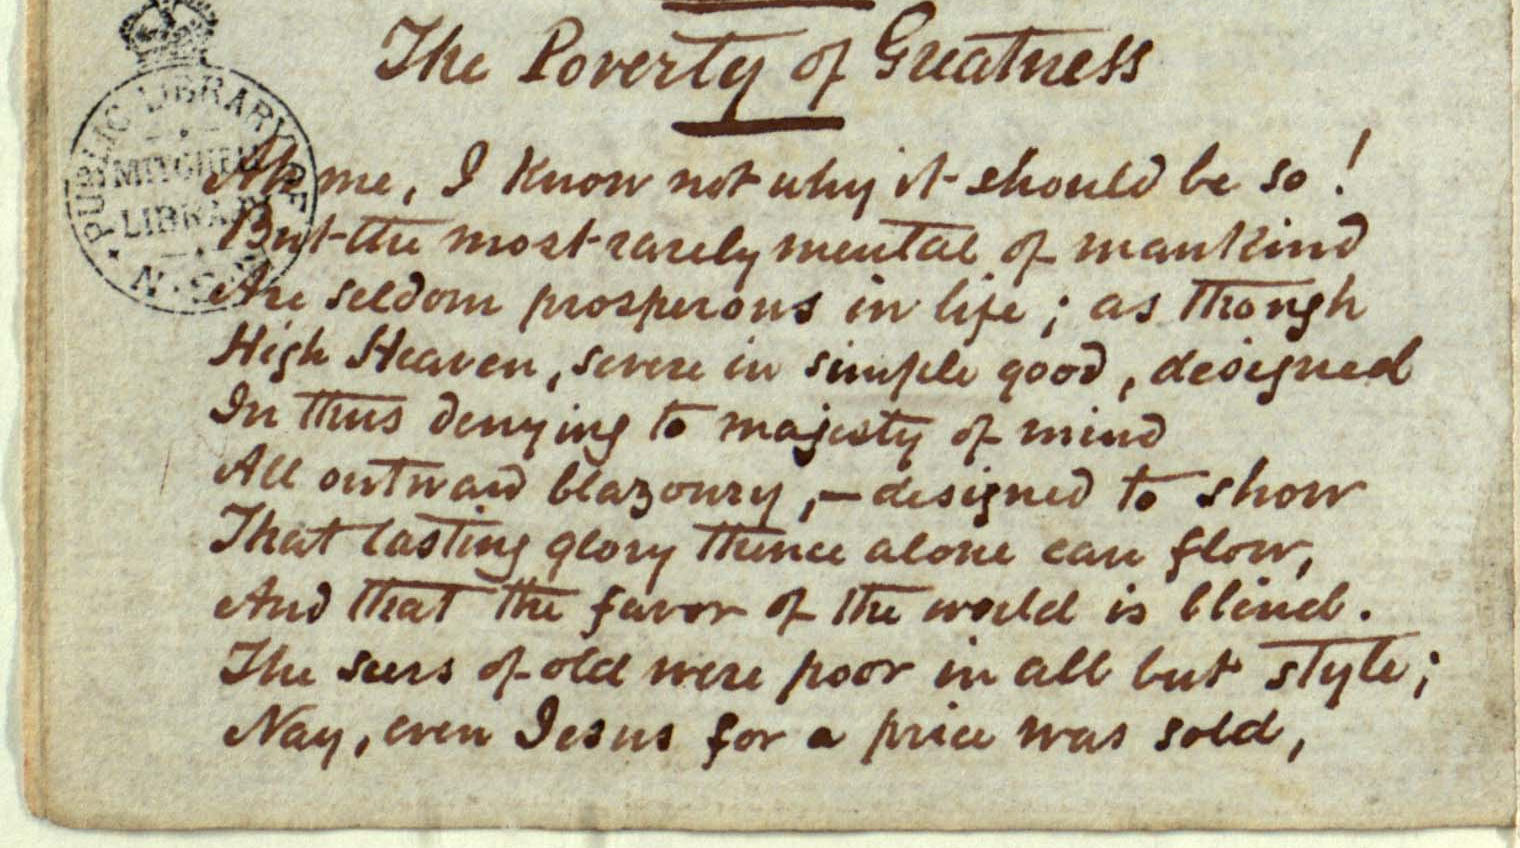 The Poverty of Greatness
PUBLIC LIBRARY OF N.S.W.
MITCHELL
LIBRARY
Ah me, I know not why it should be so!
But the most rarely mental of mankind
Are seldom prosperous in life; as though
High Heaven, severe in simple good, designed
In thus denying to majesty of mind
All outward blazonry,—designed to show
That lasting glory thence alone can flow,
And that the favor of the world is blind.
The seers of old were poor in all but style;
Nay, even Jesus for a price was sold,